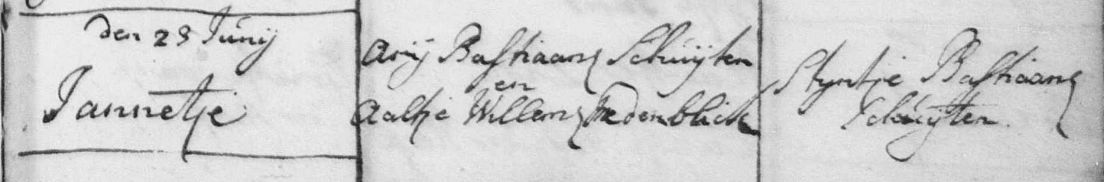 den 28 Junij
Jannetje
Arij Bastiaansz Schuijten
en
Aaltje Willemsz Vredenblick
Styntje Bastiaansz
Schuijten.